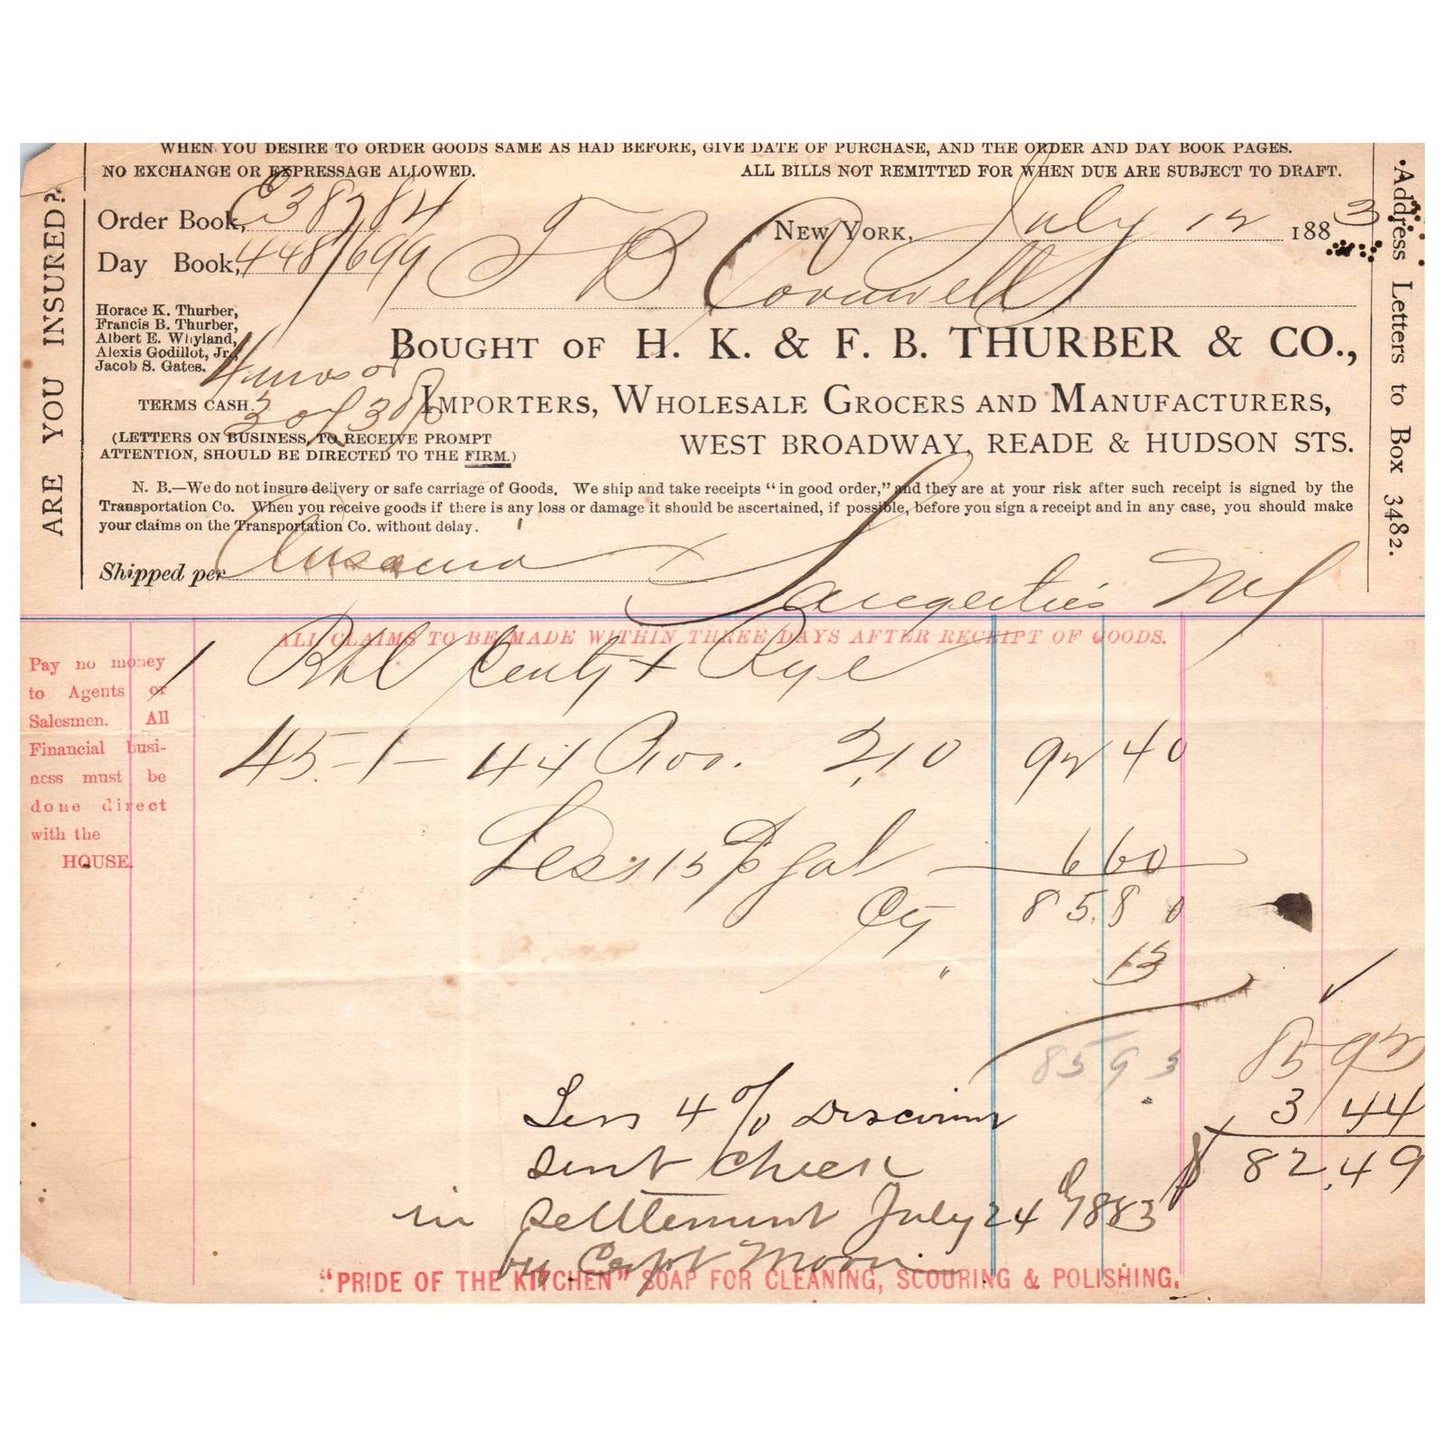 WHEN YOU DESIRE TO ORDER GOODS SAME AS HAD BEFORE, GIVE DATE OF PURCHASE, AND THE ORDER AND DAY BOOK PAGES.
NO EXCHANGE OR EXPRESSAGE ALLOWED. ALL BILLS NOT REMITTED FOR WHEN DUE ARE SUBJECT TO DRAFT.
ARE YOU INSURED?
Address Letters to Box 3482.
Order Book, C38784 New York, July 12 1883
Day Book, 448/699 T B Cornwell
Horace K. Thurber,
Francis B. Thurber,
Albert E. Whyland,
Alexis Godillot, Jr.
Jacob S. Gates.
BOUGHT OF H. K. & F. B. THURBER & CO.,
4 mos or
TERMS CASH. 3 of 30
IMPORTERS, WHOLESALE GROCERS AND MANUFACTURERS,
(LETTERS ON BUSINESS, TO RECEIVE PROMPT
ATTENTION, SHOULD BE DIRECTED TO THE FIRM.)
WEST BROADWAY, READE & HUDSON STS.
N. B.—We do not insure delivery or safe carriage of Goods. We ship and take receipts "in good order," and they are at your risk after such receipt is signed by the
Transportation Co. When you receive goods if there is any loss or damage it should be ascertained, if possible, before you sign a receipt and in any case, you should make
your claims on the Transportation Co. without delay.
Shipped per Saugerties NY
ALL CLAIMS TO BE MADE WITHIN THREE DAYS AFTER RECEIPT OF GOODS.
Pay no money
to Agents or
Salesmen. All
Financial busi-
ness must be
done direct
with the
HOUSE.
1 Bbl Rye
45-1-44 2,10 92 40
Less 15 gal 6 60
Ctg 85.80
" 13
85 93
85 93
Less 4 % Discount 3 44
sent Check $ 82.49
in settlement July 24 1883
by Capt
"PRIDE OF THE KITCHEN" SOAP FOR CLEANING, SCOURING & POLISHING.